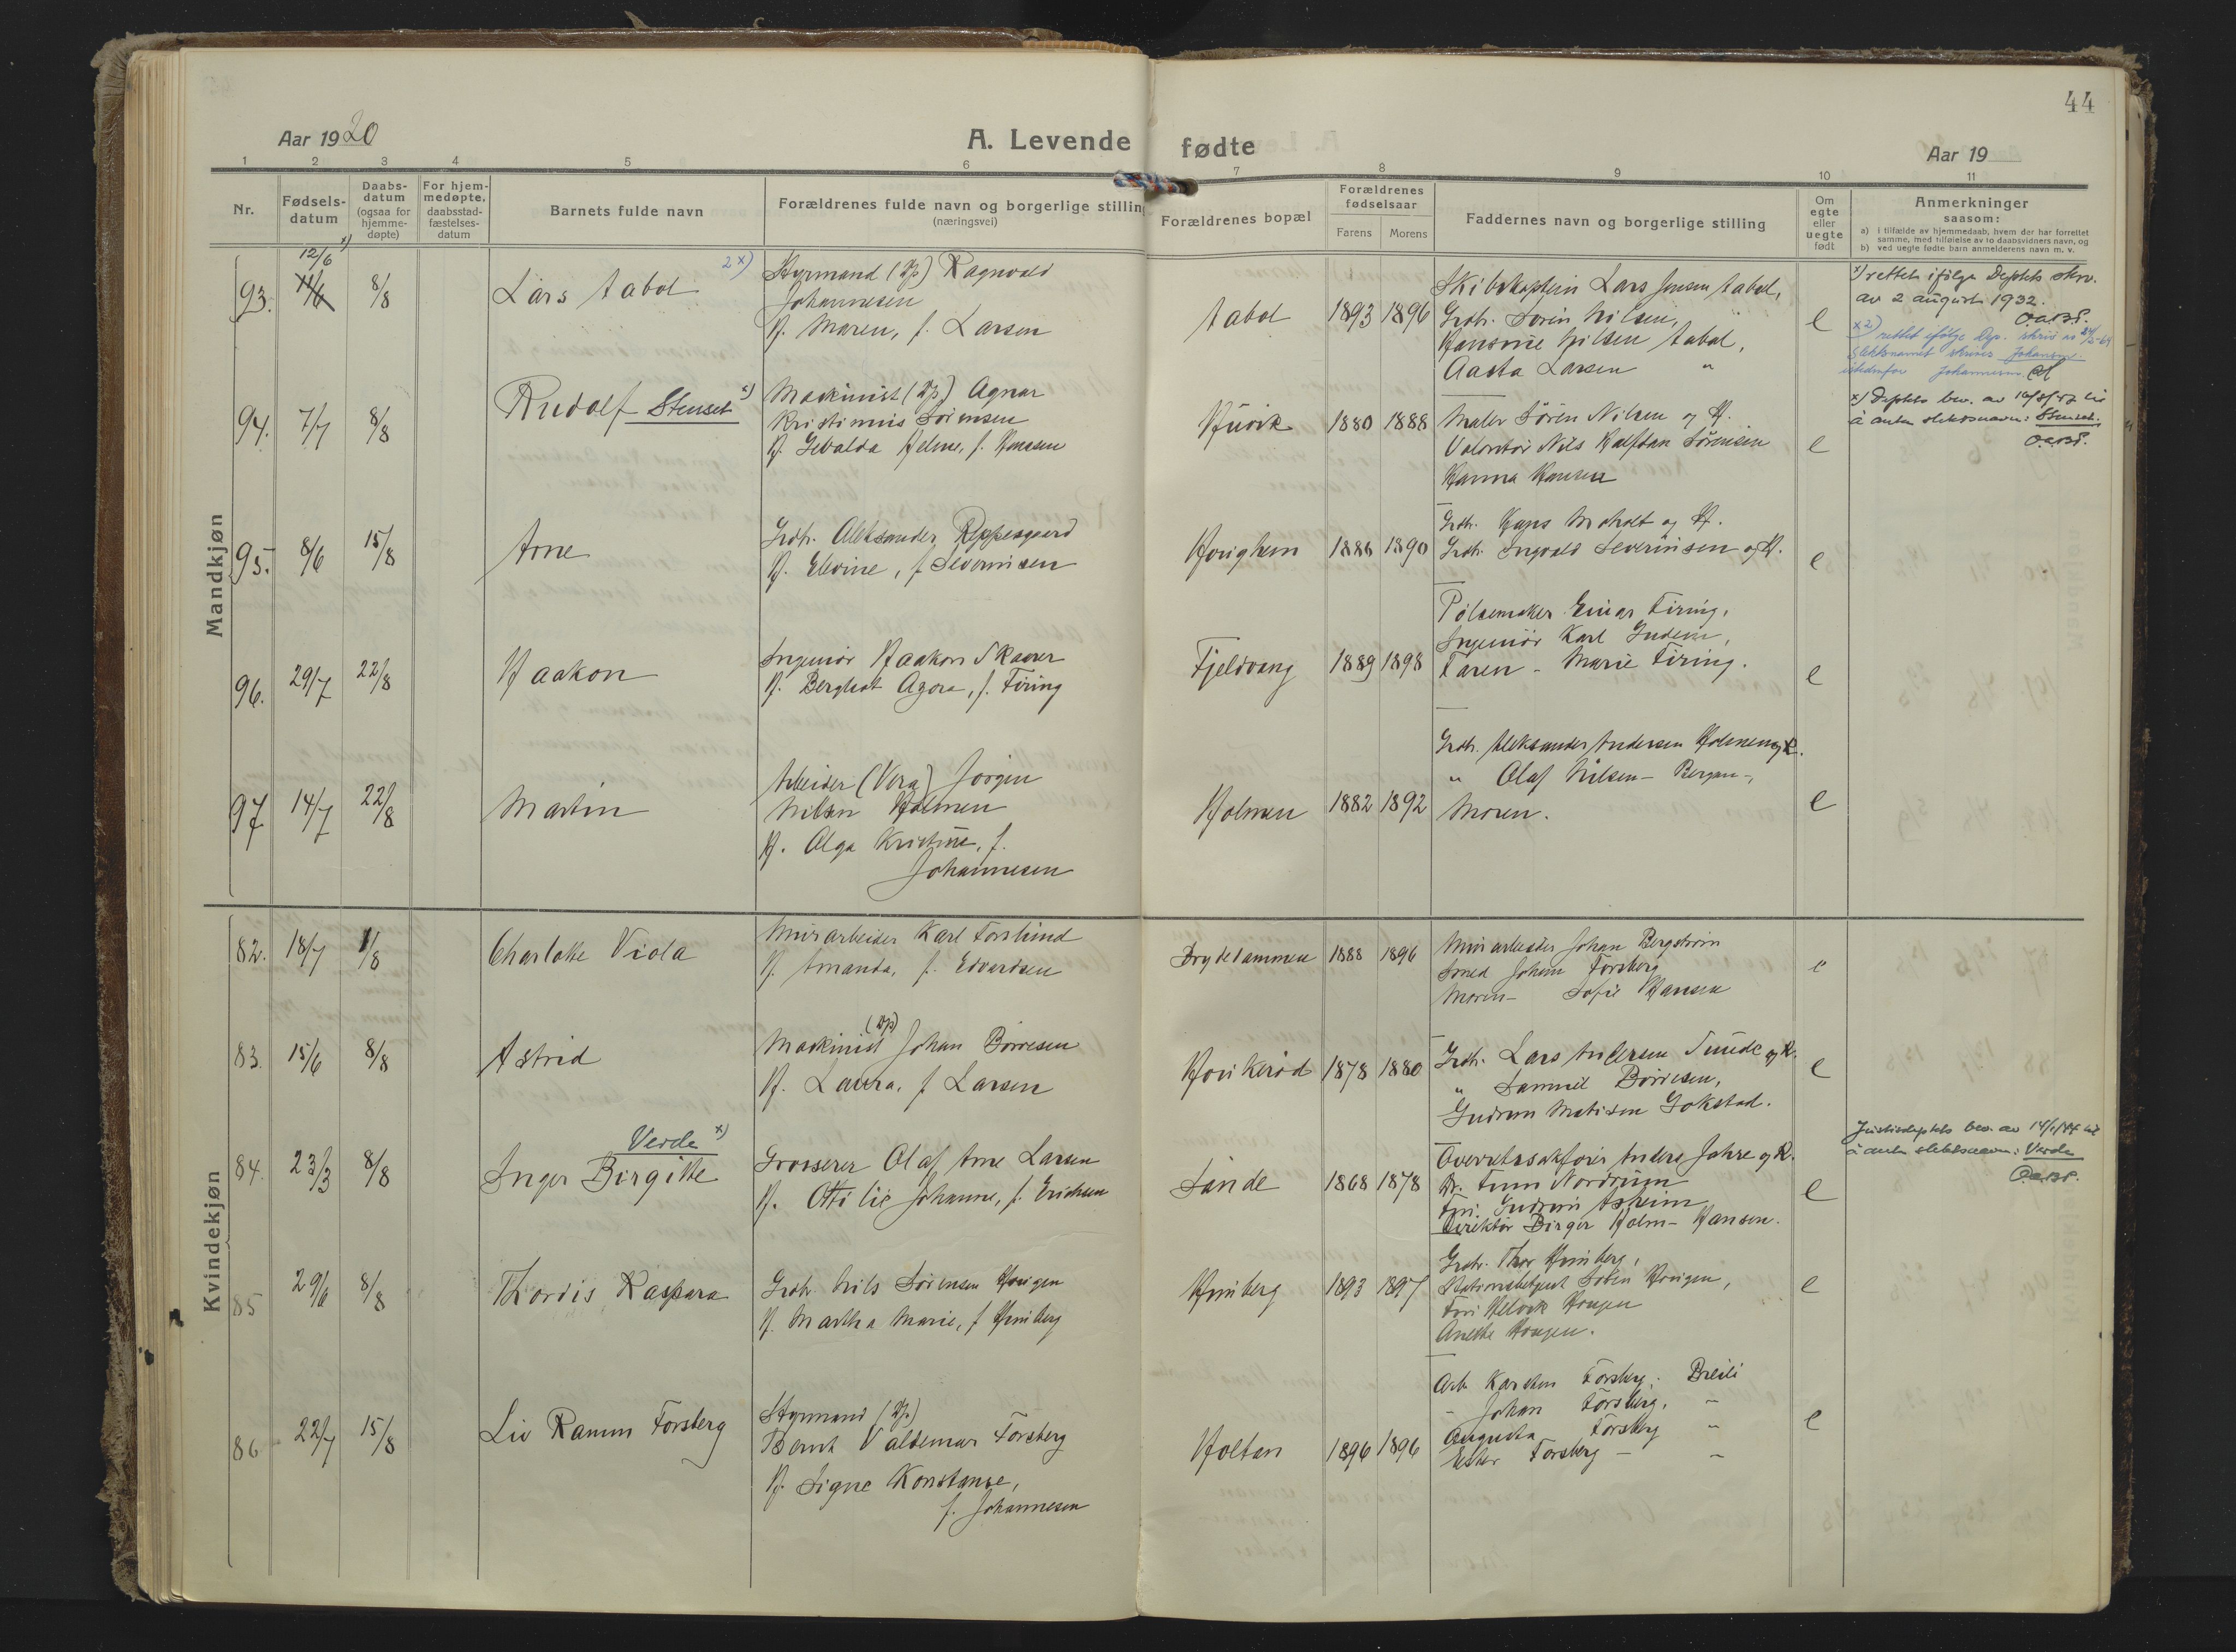 44
Aar 1920
A. Levende fødte
Aar 19
1 2 3 4 5 6 7 8 9 10 11
Nr.
Fødsels-
datum
Daabs-
datum
(ogsaa for
hjemme-
døpte)
For hjem-
medøpte,
daabsstad-
fæstelses-
datum
Barnets fulde navn
Forældrenes fulde navn og borgerlige stilling
(næringsvei)
Forældrenes bopæl
Forældrenes
fødselsaar
Farens Morens
Faddernes navn og borgerlige stilling
Om
egte
eller
uegte
født
Anmerkninger
saasom:
a) i tilfælde av hjemmedaab, hvem der har forrettet
samme, med tilføielse av to daabsvidners navn, og
b) ved uegte fødte barn anmelderens navn m. v.
Mandkjøn
93. 11/6 12/6 x) 8/8
Lars Aabol 2x)
Styrmand (Dp) Ragnvald
Johannesen
H. Maren, f. Larsen
Aabol 1893 1896
Skibskaptein Lars Jensen Aabol,
Grdbr. Sørin Nilsen, "
Hansine Nilsen Aabol,
Aasta Larsen "
e
x) rettet ifølge Deptets skrv.
av 2 august 1932.
O.a.B.P.
x2) rettet ifølge Dep. skriv av 24/5-64
Slektsnavnet skrives Johansen
istedenfor Johannesen
94. 7/7 8/8
Rudolf Stenset x)
Maskinist (Dp) Agnar
Kristinius Sørensen
H. Gevalda Helene, f. Hansen
1880 1888
Maler Sören Nilsen og H.
Nils Halfdan Sørensen
Hanna Hansen
e
x) Deptets bev. av til
å anta slektsnavn: Stenset.
O.a.B.P.
95. 8/6 15/8
Arne
Grdbr. Aleksander Reppesgaard
H. Elevine, f. Severinsen
1886 1890
Grdbr. Hans og H.
Grdbr. Ingvald Severinsen og H.
e
96. 29/7 22/8
Haakon
Ingeniør Haakon Skaarer
H. Bergliot Agora, f. Firing
Fjeldvang 1889 1898
Pølsemaker Einar Firing,
Ingeniør Karl
Faren - Marie Firing.
e
97 14/7 22/8
Martin
Arbeider (Vera) Jørgen
Nilsen Holmen
H. Olga Kristine, f.
Johannesen
Holmen 1882 1892
Grdb. Aleksander Andersen Holmen og H.
" Olaf Nilsen - Bergan -,
Moren.
e
Kvindekjøn
82. 18/7 1/8
Charlotte Viola
Murarbeider Karl Forslund
H. Amanda, f. Edvardsen
1888 1896
Murarbeider Johan Bergstrøm
Smed Johan Forsberg
Moren - Sofie Hansen
e
83. 15/6 8/8
Astrid
Maskinist (Dp) Johan Børresen
H. Laura, f. Larsen
1878 1880
Grdb. Lars Andersen Sunde og H.
" Samuel Børresen,
Gudrun Matisen Gokstad.
e
84. 23/3 8/8
Verde x)
Inger Birgitte
Grosserer Olaf Arne Larsen
H. Ottilie Johanne, f. Erichsen
Sande 1868 1878
Overretssakfører Anders Jahre og H.
Dr. Finn Nordrum
Frk. Gudrun Asheim
Direktør Birger Holm-Hansen.
e
Justisdeptets bev. av 14/1/44 til
å anta slektsnavn: Verde
O.a.B.P.
85 29/6 8/8
Thordis Kaspara
Grdb. Nils Sørensen Haugen
H. Martha Marie, f. Himberg
Himberg 1893 1897
Grdb. Thor Himberg,
Stationsbetjent Søren Haugen,
Anette Haugen.
e
86 22/7 15/8
Liv Ramm Forsberg
Styrmand (Dp.)
Bernt Valdemar Forsberg
H. Signe Konstanse,
f. Johannesen
Holtan 1896 1896
Arb. Karsten Forsberg, Breili
" Johan Forsberg, "
Augusta Forsberg "
Ester Forsberg - "
e